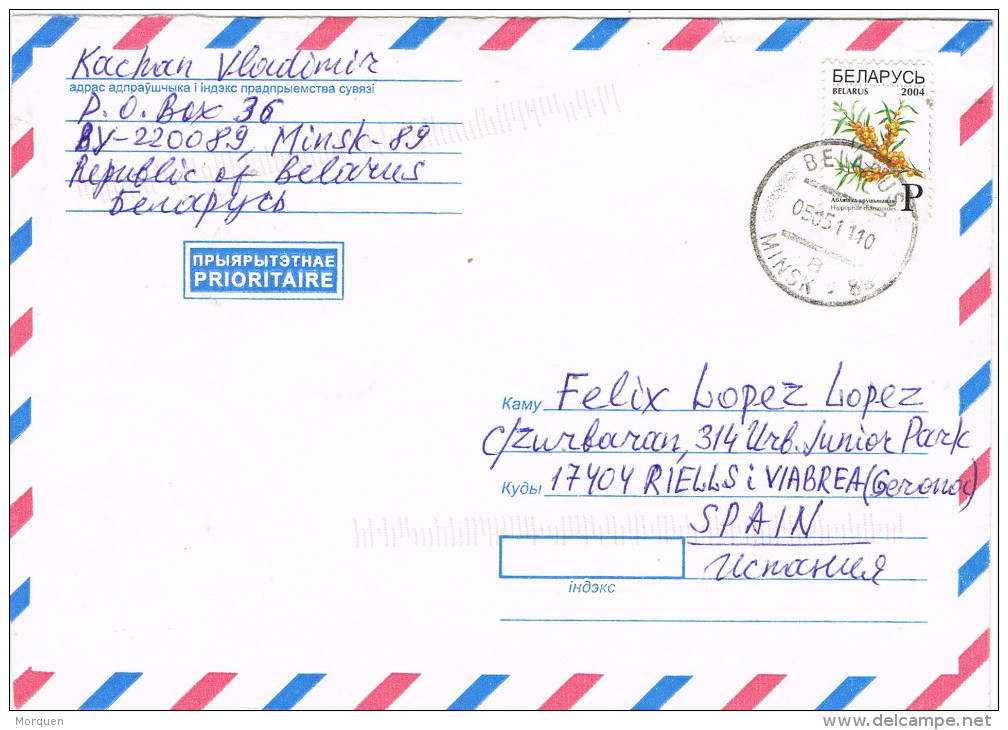 Kachan Vladimir
адрас адпраўшчыка і індэкс прадпрыемства сувязі
P.O. Box 36
BY-220089, Minsk-89
Republic of Belarus
Беларусь
ПРЫЯРЫТЭТНАЕ
PRIORITAIRE
БЕЛАРУСЬ
BELARUS 2004
P
Hippophae rhamnoides
BELARUS
050511 10
a
MINSK - 89
Каму Felix Lopez Lopez
C/Zurbaran, 314 Urb. Junior Park
Куды 17404 RIELLS i VIABREA (Gerona)
SPAIN
Испания
індэкс
Morquen
delcampe.net